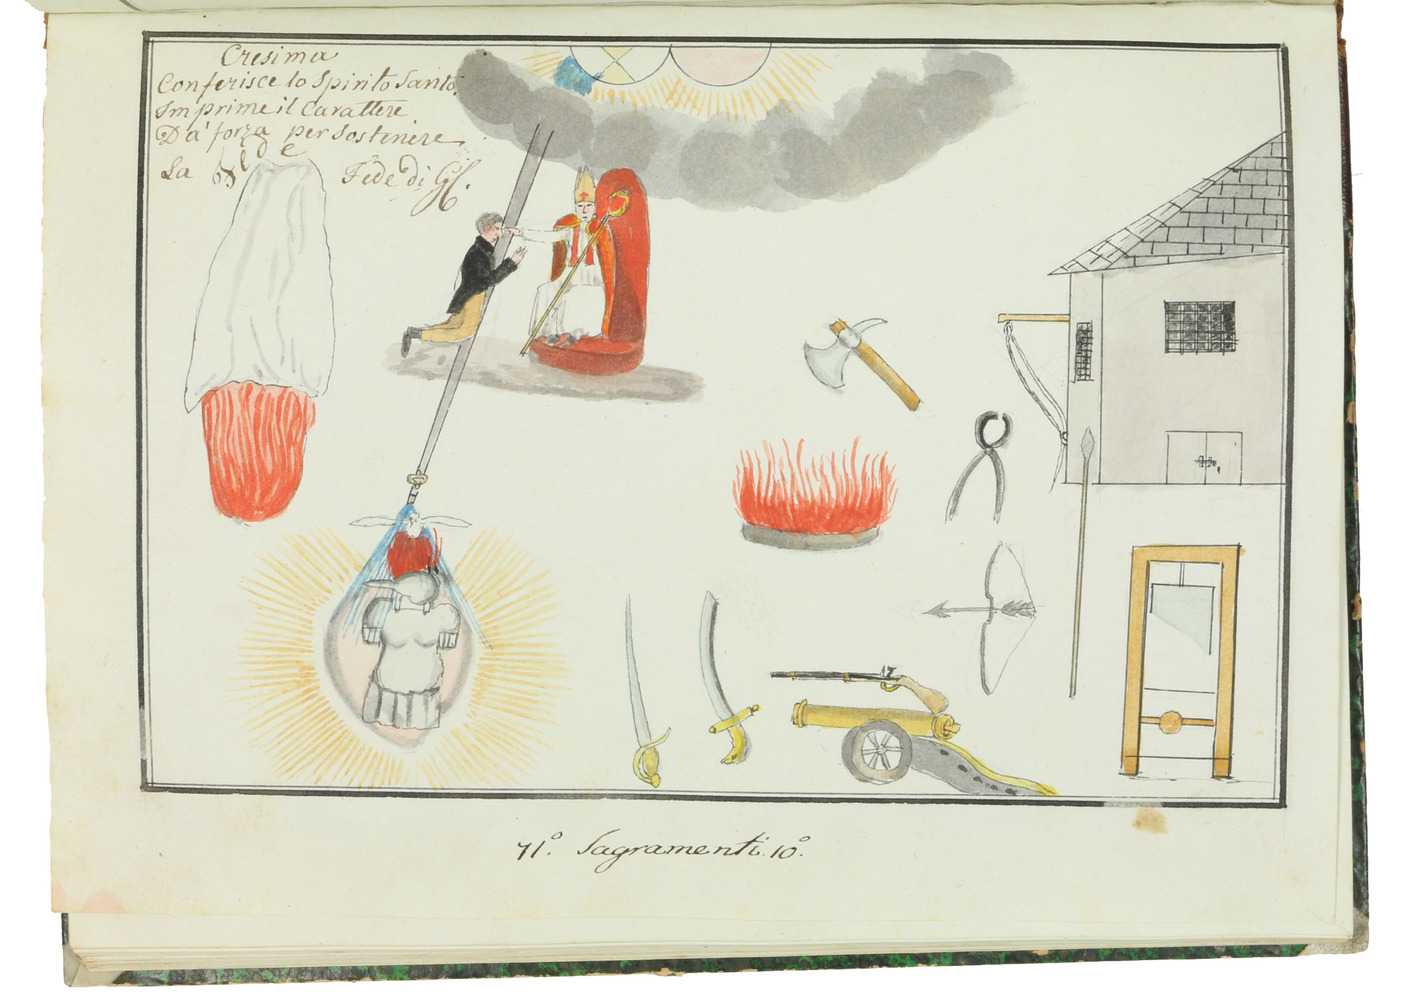 Cresima
Conferisce lo Spirito Santo,
Imprime il Carattere
Dà forza per Sostenere
La Fede di
71º. Sagramenti. 10º.